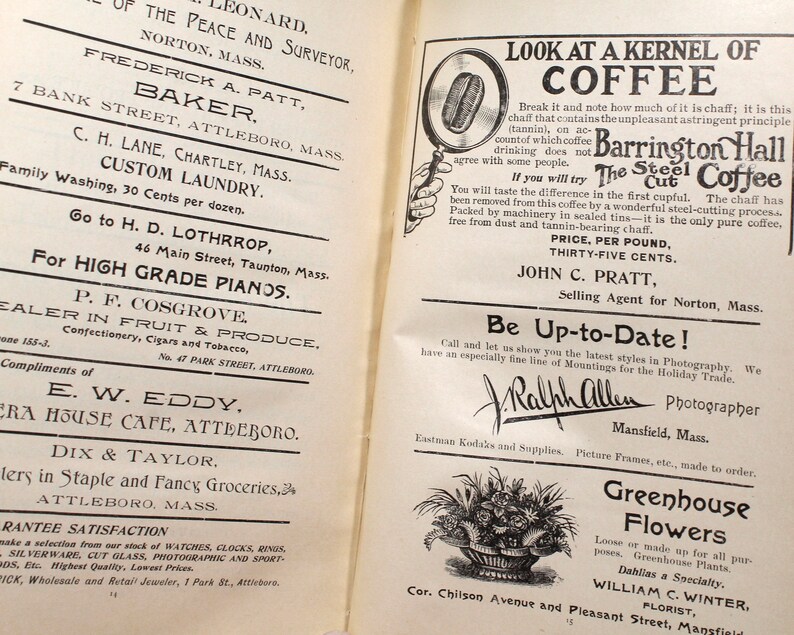 LEONARD,
OF THE PEACE AND SURVEYOR,
NORTON, MASS.
FREDERICK A. PATT,
BAKER,
7 BANK STREET, ATTLEBORO, MASS.
C. H. LANE, CHARTLEY, MASS.
CUSTOM LAUNDRY.
Family Washing, 30 Cents per dozen.
Go to H. D. LOTHRROP,
46 Main Street, Taunton, Mass.
For HIGH GRADE PIANOS.
P. F. COSGROVE,
EALER IN FRUIT & PRODUCE,
Confectionery, Cigars and Tobacco,
one 155-3. No. 47 PARK STREET, ATTLEBORO.
Compliments of
E. W. EDDY,
ERA HOUSE CAFE, ATTLEBORO.
DIX & TAYLOR,
lers in Staple and Fancy Groceries,
ATTLEBORO, MASS.
RANTEE SATISFACTION
make a selection from our stock of WATCHES, CLOCKS, RINGS,
, SILVERWARE, CUT GLASS, PHOTOGRAPHIC AND SPORT-
ODS, Etc. Highest Quality, Lowest Prices.
RICK, Wholesale and Retail Jeweler, 1 Park St., Attleboro.
14
LOOK AT A KERNEL OF
COFFEE
Break it and note how much of it is chaff; it is this
chaff that contains the unpleasant astringent principle
(tannin), on ac-
count of which coffee
drinking does not
agree with some people.
Barrington Hall
If you will try The Steel Cut Coffee
You will taste the difference in the first cupful. The chaff has
been removed from this coffee by a wonderful steel-cutting process.
Packed by machinery in sealed tins—it is the only pure coffee,
free from dust and tannin-bearing chaff.
PRICE, PER POUND,
THIRTY-FIVE CENTS.
JOHN C. PRATT,
Selling Agent for Norton, Mass.
Be Up-to-Date!
Call and let us show you the latest styles in Photography. We
have an especially fine line of Mountings for the Holiday Trade.
J. Ralph Allen Photographer
Mansfield, Mass.
Eastman Kodaks and Supplies. Picture Frames, etc., made to order.
Greenhouse
Flowers
Loose or made up for all pur-
poses. Greenhouse Plants.
Dahlias a Specialty.
WILLIAM C. WINTER,
FLORIST,
Cor. Chilson Avenue and Pleasant Street, Mansfield
15